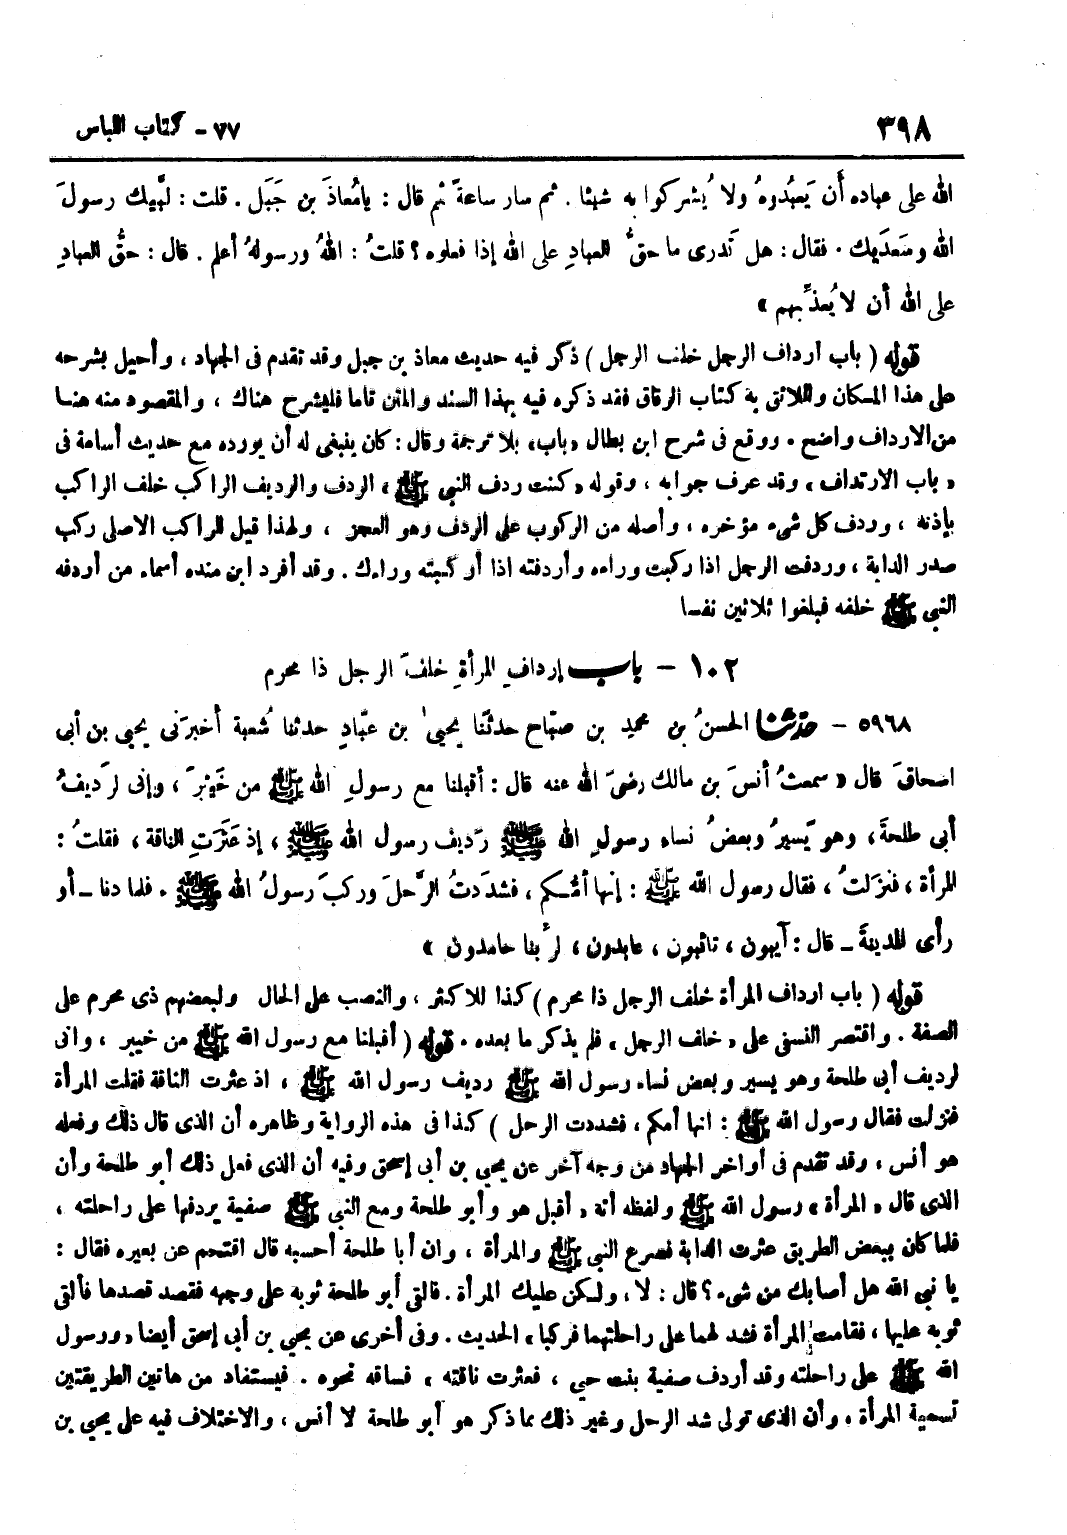 ٣٩٨
٧٧ - كتاب اللباس
الله على عباده أن يَعبُدُوهُ ولا يُشركوا به شيئا . ثم سار ساعةً ثم قال : يا مُعاذَ بن جَبَل . قلت : لبَّيك رسولَ
الله وسَعدَيك . فقال : هل تَدرى ما حقُّ العبادِ على الله إذا فعلوه ؟ قلتُ : اللهُ ورسولهُ أعلم . قال : حقُّ العبادِ
على الله أن لا يُعذِّبهم »
قوله ( باب ارداف الرجل خلف الرجل ) ذكر فيه حديث معاذ بن جبل وقد تقدم فى الجهاد ، وأحيل بشرحه
على هذا المكان واللائق به كتاب الرقاق فقد ذكره فيه بهذا السند والمتن تاما فليشرح هناك ، والمقصود منه هنا
من الارداف واضح . ووقع فى شرح ابن بطال «باب» بلا ترجمة وقال : كان ينبغى له أن يورده مع حديث أسامة فى
« باب الارتداف » وقد عرف جوابه ، وقوله « كنت ردف النبى ﷺ » الردف والرديف الراكب خلف الراكب
بإذنه ، وردف كل شىء مؤخره ، وأصله من الركوب على الردف وهو العجز ، ولهذا قيل للراكب الاصلى ركب
صدر الدابة ، وردفت الرجل اذا ركبت وراءه وأردفته اذا أركبته وراءك . وقد أفرد ابن منده أسماء من أردفه
النبى ﷺ خلفه فبلغوا ثلاثين نفسا
١٠٢ - باب إردافِ المرأةِ خلفَ الرجل ذا محرم
٥٩٦٨ - حدّثنا الحسنُ بن محمدِ بن صبّاح حدثنا يحيىٰ بن عبّادٍ حدثنا شُعبة أخبرَنى يحيى بن أبى
اسحاقَ قال « سمعتُ أنسَ بن مالك رضىَ الله عنه قال : أقبلنا مع رسولِ الله ﷺ من خَيْبرَ ، وإنى لرَديفُ
أبى طلحةَ ، وهو يَسيرُ وبعضُ نساء رسولِ الله ﷺ رَديف رسول الله ﷺ ، إذ عَثَرَتِ الناقة ، فقلتُ :
المرأة ، فنزَلتُ ، فقال رسول الله ﷺ : إنها أمُّكم ، فشدَدتُ الرَّحلَ وركبَ رسولُ الله ﷺ . فلما دنا ـ أو
رأى المدينةَ ـ قال : آيبون ، تائبون ، عابدون ، لربِّنا حامدون »
قوله ( باب ارداف المرأة خلف الرجل ذا محرم ) كذا للاكثر ، والنصب على الحال ولبعضهم ذى محرم على
الصفة . واقتصر النسفى على « خلف الرجل » فلم يذكر ما بعده . قوله ( أقبلنا مع رسول الله ﷺ من خيبر ، وانى
لرديف أبى طلحة وهو يسير وبعض نساء رسول الله ﷺ رديف رسول الله ﷺ ، اذ عثرت الناقة فقلت المرأة
فنزلت فقال رسول الله ﷺ : انها أمكم ، فشددت الرحل ) كذا فى هذه الرواية وظاهره أن الذى قال ذلك وفعله
هو أنس ، وقد تقدم فى أواخر الجهاد من وجه آخر عن يحيى بن أبى إسحق وفيه أن الذى فعل ذلك أبو طلحة وأن
الذى قال « المرأة » رسول الله ﷺ ولفظه أنه « أقبل هو وأبو طلحة ومع النبى ﷺ صفية يردفها على راحلته ،
فلما كان ببعض الطريق عثرت الدابة فصرع النبى ﷺ والمرأة ، وان أبا طلحة أحسبه قال اقتحم عن بعيره فقال :
يا نبى الله هل أصابك من شىء ؟ قال : لا ، ولكن عليك المرأة . فالقى أبو طلحة ثوبه على وجهه فقصد قصدها فألقى
ثوبه عليها ، فقامت المرأة فشد لهما على راحلتهما فركبا » الحديث . وفى أخرى عن يحيى بن أبى إسحق أيضا « ورسول
الله ﷺ على راحلته وقد أردف صفية بنت حيى ، فعثرت ناقته » فساقه نحوه . فيستفاد من هاتين الطريقتين
تسمية المرأة ، وأن الذى تولى شد الرحل وغير ذلك مما ذكر هو أبو طلحة لا أنس ، والاختلاف فيه على يحيى بن